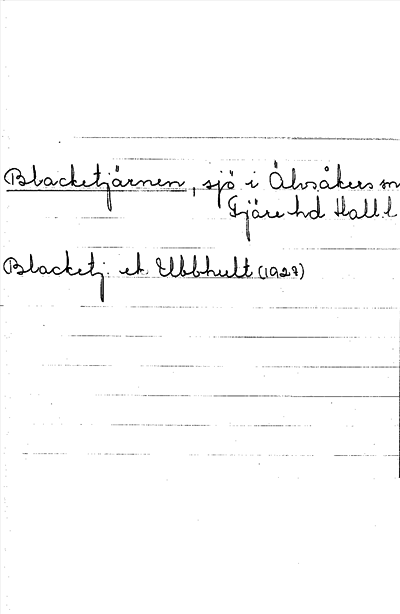 Blacketjärnen, sjö i Älvsåkers sn
Fjäre hd Hall. l
Blacketj. ek Ubbhult (1928)